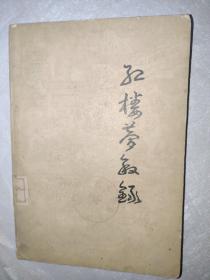 红楼夢叙録